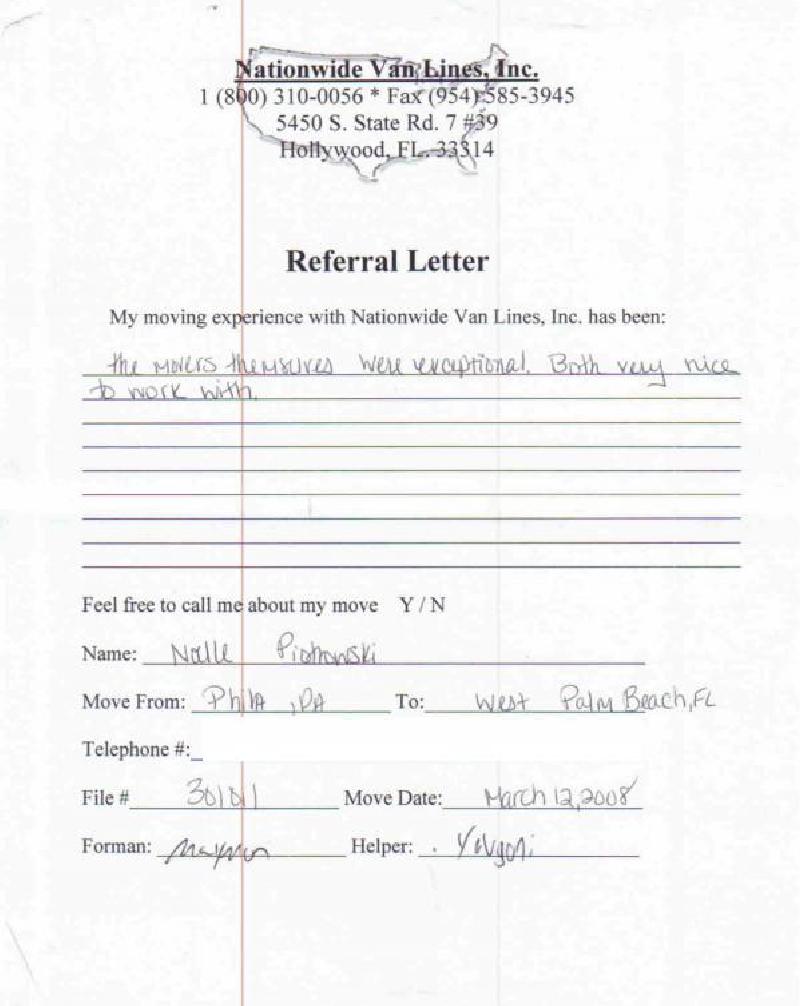 Nationwide Van Lines, Inc.
1 (800) 310-0056 * Fax (954) 585-3945
5450 S. State Rd. 7 #39
Hollywood, FL. 33314
Referral Letter
My moving experience with Nationwide Van Lines, Inc. has been:
the movers themselves were exceptional. Both very nice
to work with.
Feel free to call me about my move Y / N
Name: Piotrowski
Move From: Phila, PA To: West Palm Beach, FL
Telephone #:
File # Move Date: March 12, 2008
Forman: Helper: